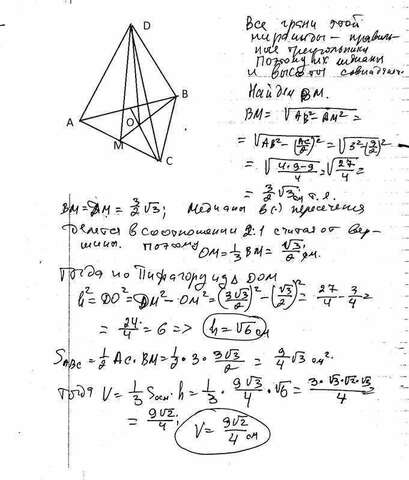 D
A
B
O
M
C
Все грани этой
пирамиды – правиль-
ные треугольники
Поэтому их медианы
и высоты совпадают.
Найдем BM.
BM = √(AB² - AM²) =
= √(AB² - (AC/2)²) = √(3² - (3/2)²) =
= √((4·9-9)/4) = √(27/4) =
= 3/2 √3 см
BM = DM = 3/2 √3; Медианы в (·) пересечения
делятся в соотношении 2:1 считая от вер-
шины. Поэтому OM = 1/3 BM = √3/2 см.
Тогда по Пифагору из Δ DOM
h² = DO² = DM² - OM² = (3√3/2)² - (√3/2)² = 27/4 - 3/4 =
= 24/4 = 6 => h = √6 см
S ABC = 1/2 AC · BM = 1/2 · 3 · 3√3/2 = 9/4 √3 см²
Тогда V = 1/3 Sосн · h = 1/3 · 9√3/4 · √6 = 3·√3·√2·√3/4
= 9√2/4;
V = 9√2/4 см